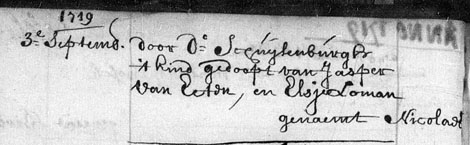 1719
3.e Septemb. door D.s Scuijlenburgh
't kind gedoopt van Jasper
Van Ecten, en Elsje Loman
genaemt Nicolaas